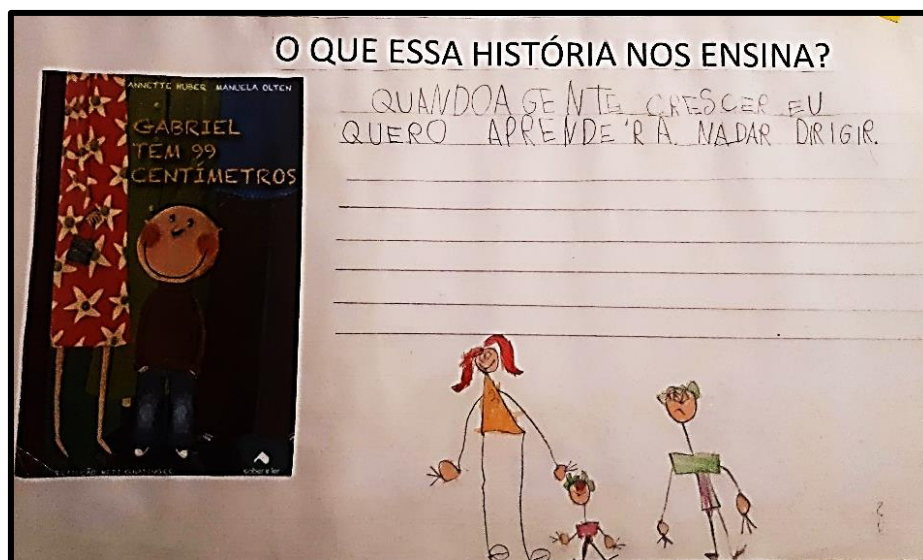 O QUE ESSA HISTÓRIA NOS ENSINA?
ANNETTE HUBER MANUELA OLTEN
GABRIEL
TEM 99
CENTÍMETROS
saber e ler
QUANDOA GENTE CRESCER EU
QUERO APRENDE'R A NADAR DIRIGIR.